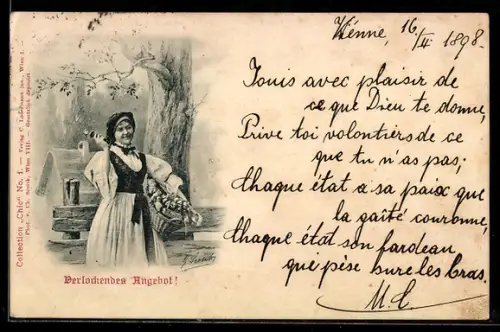 Vienne, 16/II 1898.
Jouis avec plaisir de
ce que Dieu te donne,
Prive toi volontiers de ce
que tu n'as pas;
Chaque état a sa paix que
la gaîté couronne,
Chaque état son fardeau
qui pèse sure les bras.
M. C.
Verlockendes Angebot!
Collection „Chic" No. 1. — Verlag C. Wien I. —
Wien VIII. —